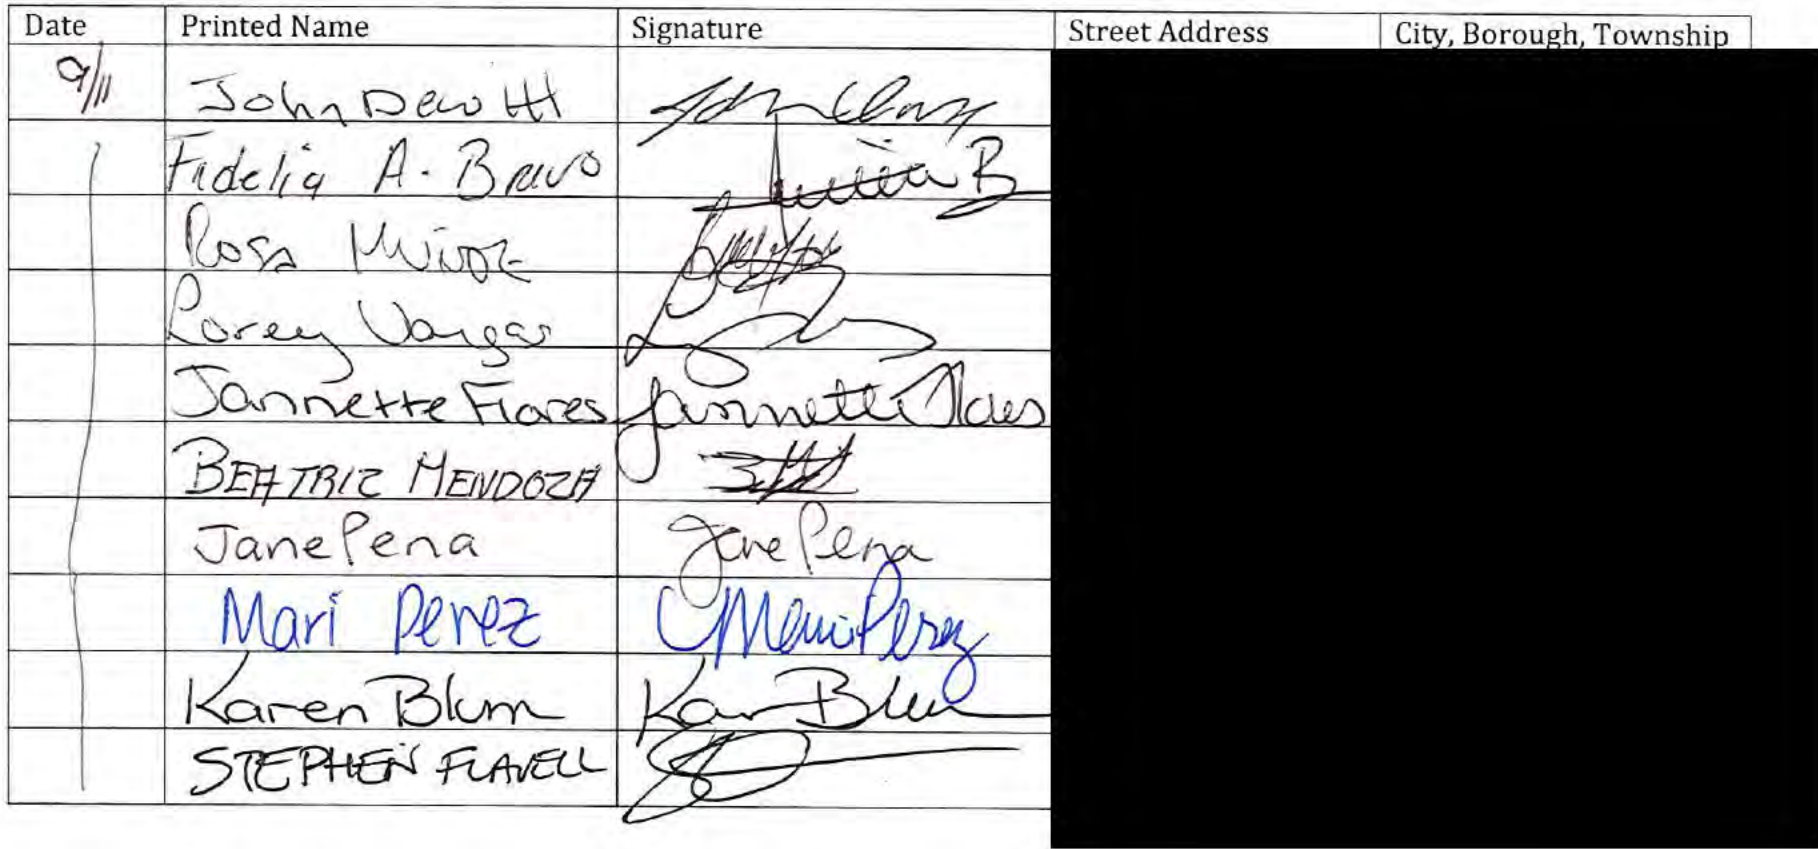 Date Printed Name Signature Street Address City, Borough, Township
9/11 John Dewitt
Fidelia A. Bravo
Rosa Muñoz
Lorey Vargas
Jannette Flores Jannette Flores
BEATRIZ MENDOZA
Jane Pena Jane Pena
Mari Perez Mari Perez
Karen Blum Karen Blum
STEPHEN FLAVELL